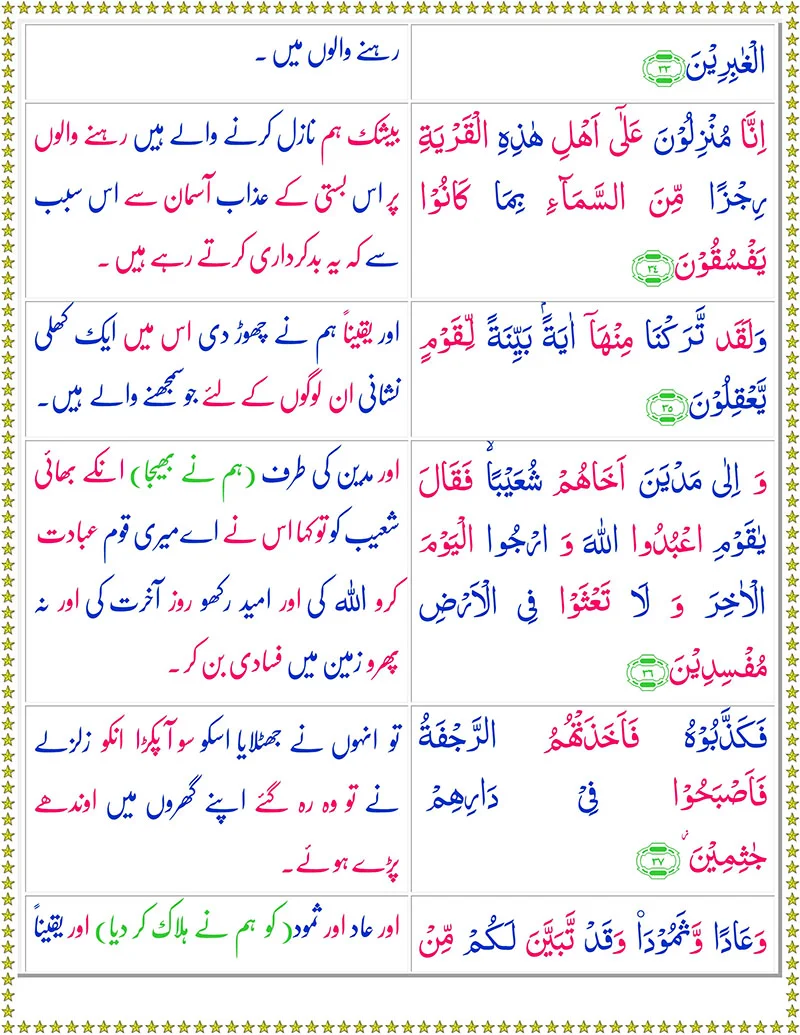 الْغٰبِرِيْنَ ٣٣
رہنے والوں میں ۔
اِنَّا مُنْزِلُوْنَ عَلٰٓى اَهْلِ هٰذِهِ الْقَرْيَةِ
رِجْزًا مِّنَ السَّمَآءِ بِمَا كَانُوْا
يَفْسُقُوْنَ ٣٤
بیشک ہم نازل کرنے والے ہیں رہنے والوں
پر اس بستی کے عذاب آسمان سے اس سبب
سے کہ یہ بدکرداری کرتے رہے ہیں ۔
وَلَقَد تَّرَكْنَا مِنْهَآ اٰيَةًۢ بَيِّنَةً لِّقَوْمٍ
يَّعْقِلُوْنَ ٣٥
اور یقیناً ہم نے چھوڑ دی اس میں ایک کھلی
نشانی ان لوگوں کے لئے جو سمجھنے والے ہیں۔
وَ اِلٰى مَدْيَنَ اَخَاهُمْ شُعَيْبًا ۙ فَقَالَ
يٰقَوْمِ اعْبُدُوا اللّٰهَ وَ ارْجُوا الْيَوْمَ
الْاٰخِرَ وَ لَا تَعْثَوْا فِى الْاَرْضِ
مُفْسِدِيْنَ ٣٦
اور مدین کی طرف (ہم نے بھیجا) انکے بھائی
شعیب کو تو کہا اس نے اے میری قوم عبادت
کرو اللہ کی اور امید رکھو روز آخرت کی اور نہ
پھرو زمین میں فسادی بن کر ۔
فَكَذَّبُوْهُ فَاَخَذَتْهُمُ الرَّجْفَةُ
فَاَصْبَحُوْا فِىْ دَارِهِمْ
جٰثِمِيْنَ ۙ ٣٧
تو انہوں نے جھٹلایا اسکو سو آ پکڑا انکو زلزلے
نے تو وہ رہ گئے اپنے گھروں میں اوندھے
پڑے ہوئے۔
وَعَادًا وَّثَمُوْدَا۟ وَقَدْ تَّبَيَّنَ لَكُمْ مِّنْ
اور عاد اور ثمود (کو ہم نے ہلاک کر دیا) اور یقیناً